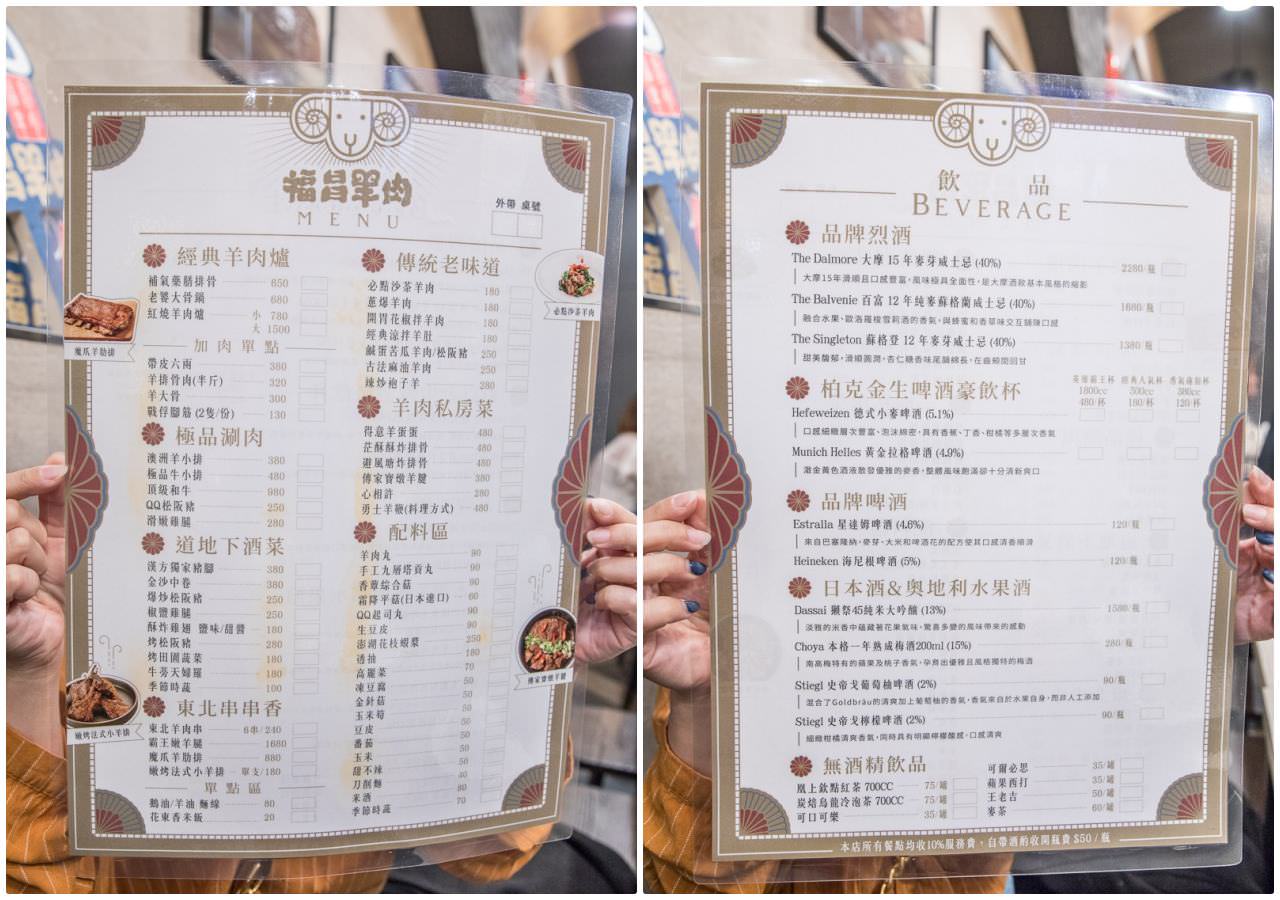 福昌羊肉
MENU
外帶 桌號
經典羊肉爐
補氣藥膳排骨 650
老饕大骨鍋 680
紅燒羊肉爐 小 780
大 1500
加肉單點
帶皮六兩 380
羊排骨肉(半斤) 320
羊大骨 300
戰俘腳筋(2隻/份) 130
極品涮肉
澳洲羊小排 380
極品牛小排 480
頂級和牛 980
QQ松阪豬 250
滑嫩雞腿 280
道地下酒菜
漢方獨家豬腳 380
金沙中卷 380
爆炒松阪豬 250
椒鹽雞腿 250
酥炸雞翅 鹽味/甜醬 180
烤松阪豬 280
烤田園蔬菜 180
牛蒡天婦羅 180
季節時蔬 100
東北串串香
東北羊肉串 6串/240
霸王嫩羊腿 1680
魔爪羊肋排 880
嫩烤法式小羊排 單支/180
單點區
鵝油/羊油 麵線 80
花東香米飯 20
魔爪羊肋排
嫩烤法式小羊排
傳統老味道
必點沙茶羊肉 180
蔥爆羊肉 180
開胃花椒拌羊肉 180
經典涼拌羊肚 180
鹹蛋苦瓜羊肉/松阪豬 250
古法麻油羊肉 250
辣炒袍子羊 280
羊肉私房菜
得意羊蛋蛋 480
茫酥酥炸排骨 480
避風塘炸排骨 480
傳家寶燉羊腱 380
心相許 280
勇士羊鞭(料理方式) 480
配料區
羊肉丸 90
手工九層塔貢丸 90
香蕈綜合菇 90
霜降平菇(日本進口) 60
QQ起司丸 90
生豆皮 90
澎湖花枝蝦漿
透抽 180
高麗菜 70
凍豆腐 50
金針菇 50
玉米筍 50
豆皮 50
番茄 50
玉米 50
甜不辣 50
刀削麵 40
米酒 80
季節時蔬 70
必點沙茶羊肉
傳家寶燉羊腱
飲品
BEVERAGE
品牌烈酒
The Dalmore 大摩 15 年麥芽威士忌 (40%) 2280/瓶
大摩15年滑順且口感豐富，風味極具全面性，是大摩酒款基本風格的縮影
The Balvenie 百富 12 年純麥蘇格蘭威士忌 (40%) 1680/瓶
融合水果、歐洛羅梭雪莉酒的香氣，與蜂蜜和香草味交互鋪陳口感
The Singleton 蘇格登 12 年麥芽威士忌 (40%) 1380/瓶
甜美馥郁，滑順圓潤，杏仁糖香味尾韻綿長，在齒頰間回甘
柏克金生啤酒豪飲杯
英雄霸王杯 經典人氣杯 香氣鬱韻杯
1800cc 500cc 380cc
480/杯 180/杯 120/杯
Hefeweizen 德式小麥啤酒 (5.1%)
口感細緻層次豐富、泡沫綿密，具有香蕉、丁香、柑橘等多層次香氣
Munich Helles 黃金拉格啤酒 (4.9%)
澈金黃色酒液散發優雅的麥香，整體風味飽滿卻十分清新爽口
品牌啤酒
Estralla 星達姆啤酒 (4.6%) 120/瓶
來自巴塞隆納，麥芽、大米和啤酒花的配方使其口感清香順滑
Heineken 海尼根啤酒 (5%) 120/瓶
日本酒&奧地利水果酒
Dassai 獺祭45純米大吟釀 (13%) 1580/瓶
淡雅的米香中蘊藏著花果氣味，驚喜多變的風味帶來的感動
Choya 本格一年熟成梅酒200ml (15%) 280/瓶
南高梅特有的蘋果及桃子香氣，孕育出優雅且風格獨特的梅酒
Stiegl 史帝戈葡萄柚啤酒 (2%) 90/瓶
混合了Goldbräu的清爽加上葡萄柚的香氣，香氣來自於水果自身，而非人工添加
Stiegl 史帝戈檸檬啤酒 (2%) 90/瓶
細緻柑橘清爽香氣，同時具有明顯檸檬酸感，口感清爽
無酒精飲品
凰上欽點紅茶 700CC 75/罐
炭焙烏龍冷泡茶 700CC 75/罐
可口可樂 35/罐
可爾必思 35/罐
蘋果西打 35/罐
王老吉 50/罐
麥茶 60/罐
本店所有餐點均收10%服務費，自帶酒酌收開瓶費 $50 / 瓶